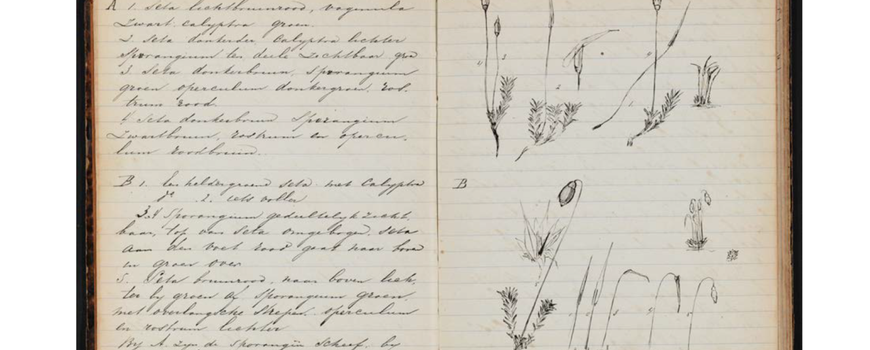 A 1. Seta lichtbruinrood, vaginula
zwart calyptra groen.
2 Seta donkerder Calyptra lichter
Sporangium ten deele zichtbaar
3 Seta donkerbruin, Sporangium
groen operculum donkergroen, ros-
trum rood
4 Seta donkerbruin Sporangium
zwartbruin, rostrum en opercu-
lum roodbruin.
B 1. heldergroene Seta met Calyptra
do 2. iets voller
3.4 Sporangium gedeeltelijk zicht
baar, top van Seta omgebogen, Seta
aan den voet rood gaat naar boven
in groen over
5. Seta bruinrood, naar boven lich-
ter bij groen af Sporangium groen
met overlangsche strepen operculum
en rostrum lichter
Bij A zijn de Sporangiën scheef, bij
B